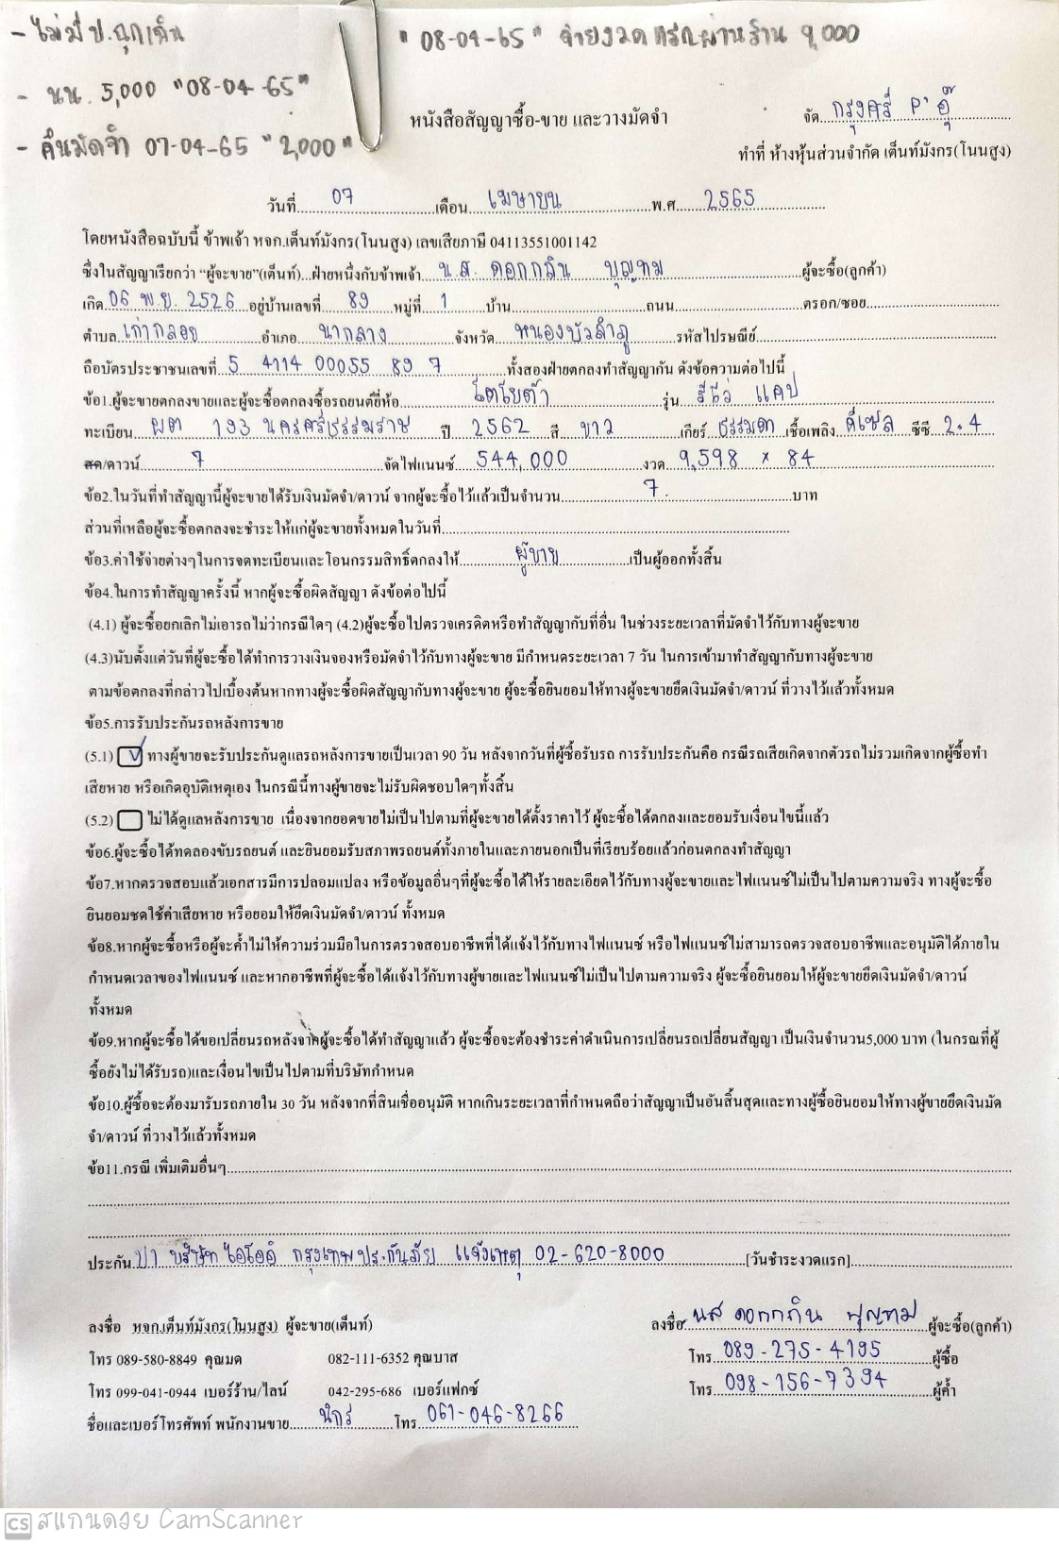 - ไม่มี ป.ฉุกเฉิน
"08-04-65" จ่ายงวดแรกผ่านร้าน 9,000
- นน. 5,000 "08-04-65"
- คืนมัดจำ 07-04-65 "2,000"
หนังสือสัญญาซื้อ-ขาย และวางมัดจำ
จัด กรุงศรี P'อุ๊
ทำที่ ห้างหุ้นส่วนจำกัด เต็นท์มังกร(โนนสูง)
วันที่ 07 เดือน เมษายน พ.ศ 2565
โดยหนังสือฉบับนี้ ข้าพเจ้า หจก.เต็นท์มังกร(โนนสูง) เลขเสียภาษี 04113551001142
ซึ่งในสัญญาเรียกว่า "ผู้จะขาย"(เต็นท์)...ฝ่ายหนึ่งกับข้าพเจ้า น.ส. ดอกกลิน บุญทม ผู้จะซื้อ(ลูกค้า)
เกิด 06 พ.ย. 2526 อยู่บ้านเลขที่ 89 หมู่ที่ 1 บ้าน ถนน ตรอก/ซอย
ตำบล เก่ากลอย อำเภอ นากลาง จังหวัด หนองบัวลำภู รหัสไปรษณีย์
ถือบัตรประชาชนเลขที่ 5 4114 00055 89 7 ทั้งสองฝ่ายตกลงทำสัญญากัน ดังข้อความต่อไปนี้
ข้อ1.ผู้จะขายตกลงขายและผู้จะซื้อตกลงซื้อรถยนต์ยี่ห้อ โตโยต้า รุ่น รีโว่ แคป
ทะเบียน ผต 193 นครศรีธรรมราช ปี 2562 สี ขาว เกียร์ ธรรมดา เชื้อเพลิง ดีเซล ซีซี 2.4
สด/ดาวน์ 7 จัดไฟแนนซ์ 544,000 งวด 9,598 x 84
ข้อ2.ในวันที่ทำสัญญานี้ผู้จะขายได้รับเงินมัดจำ/ดาวน์ จากผู้จะซื้อไว้แล้วเป็นจำนวน 7. บาท
ส่วนที่เหลือผู้จะซื้อตกลงจะชำระให้แก่ผู้จะขายทั้งหมดในวันที่
ข้อ3.ค่าใช้จ่ายต่างๆในการจดทะเบียนและโอนกรรมสิทธิ์ตกลงให้ ผู้ขาย เป็นผู้ออกทั้งสิ้น
ข้อ4.ในการทำสัญญาครั้งนี้ หากผู้จะซื้อผิดสัญญา ดังข้อต่อไปนี้
(4.1) ผู้จะซื้อยกเลิกไม่เอารถไม่ว่ากรณีใดๆ (4.2)ผู้จะซื้อไปตรวจเครดิตหรือทำสัญญากับที่อื่น ในช่วงระยะเวลาที่มัดจำไว้กับทางผู้จะขาย
(4.3)นับตั้งแต่วันที่ผู้จะซื้อได้ทำการวางเงินจองหรือมัดจำไว้กับทางผู้จะขาย มีกำหนดระยะเวลา 7 วัน ในการเข้ามาทำสัญญากับทางผู้จะขาย
ตามข้อตกลงที่กล่าวไปเบื้องต้นหากทางผู้จะซื้อผิดสัญญากับทางผู้จะขาย ผู้จะซื้อยินยอมให้ทางผู้จะขายยึดเงินมัดจำ/ดาวน์ ที่วางไว้แล้วทั้งหมด
ข้อ5.การรับประกันรถหลังการขาย
(5.1) ✓ ทางผู้ขายจะรับประกันดูแลรถหลังการขายเป็นเวลา 90 วัน หลังจากวันที่ผู้ซื้อรับรถ การรับประกันคือ กรณีรถเสียเกิดจากตัวรถไม่รวมเกิดจากผู้ซื้อทำ
เสียหาย หรือเกิดอุบัติเหตุเอง ในกรณีนี้ทางผู้ขายจะไม่รับผิดชอบใดๆทั้งสิ้น
(5.2) ไม่ได้ดูแลหลังการขาย เนื่องจากยอดขายไม่เป็นไปตามที่ผู้จะขายได้ตั้งราคาไว้ ผู้จะซื้อได้ตกลงและยอมรับเงื่อนไขนี้แล้ว
ข้อ6.ผู้จะซื้อได้ทดลองขับรถยนต์ และยินยอมรับสภาพรถยนต์ทั้งภายในและภายนอกเป็นที่เรียบร้อยแล้วก่อนตกลงทำสัญญา
ข้อ7.หากตรวจสอบแล้วเอกสารมีการปลอมแปลง หรือข้อมูลอื่นๆที่ผู้จะซื้อได้ให้รายละเอียดไว้กับทางผู้จะขายและไฟแนนซ์ไม่เป็นไปตามความจริง ทางผู้จะซื้อ
ยินยอมชดใช้ค่าเสียหาย หรือยอมให้ยึดเงินมัดจำ/ดาวน์ ทั้งหมด
ข้อ8.หากผู้จะซื้อหรือผู้จะค้ำไม่ให้ความร่วมมือในการตรวจสอบอาชีพที่ได้แจ้งไว้กับทางไฟแนนซ์ หรือไฟแนนซ์ไม่สามารถตรวจสอบอาชีพและอนุมัติได้ภายใน
กำหนดเวลาของไฟแนนซ์ และหากอาชีพที่ผู้จะซื้อได้แจ้งไว้กับทางผู้ขายและไฟแนนซ์ไม่เป็นไปตามความจริง ผู้จะซื้อยินยอมให้ผู้จะขายยึดเงินมัดจำ/ดาวน์
ทั้งหมด
ข้อ9.หากผู้จะซื้อได้ขอเปลี่ยนรถหลังจากผู้จะซื้อได้ทำสัญญาแล้ว ผู้จะซื้อจะต้องชำระค่าดำเนินการเปลี่ยนรถเปลี่ยนสัญญา เป็นเงินจำนวน5,000 บาท (ในกรณที่ผู้
ซื้อยังไม่ได้รับรถ)และเงื่อนไขเป็นไปตามที่บริษัทกำหนด
ข้อ10.ผู้ซื้อจะต้องมารับรถภายใน 30 วัน หลังจากที่สินเชื่ออนุมัติ หากเกินระยะเวลาที่กำหนดถือว่าสัญญาเป็นอันสิ้นสุดและทางผู้ซื้อยินยอมให้ทางผู้ขายยึดเงินมัด
จำ/ดาวน์ ที่วางไว้แล้วทั้งหมด
ข้อ11.กรณี เพิ่มเติมอื่นๆ
ประกัน ป1 บริษัท ไอโออิ กรุงเทพประกันภัย แจ้งเหตุ 02-620-8000 [วันชำระงวดแรก]
ลงชื่อ หจก.เต็นท์มังกร(โนนสูง) ผู้จะขาย(เต็นท์)
ลงชื่อ นส ดอกกลิน บุญทม ผู้จะซื้อ(ลูกค้า)
โทร 089-580-8849 คุณมด 082-111-6352 คุณบาส
โทร 089-275-4195 ผู้ซื้อ
โทร 099-041-0944 เบอร์ร้าน/ไลน์ 042-295-686 เบอร์แฟกซ์
โทร 098-156-7394 ผู้ค้ำ
ชื่อและเบอร์โทรศัพท์ พนักงานขาย โทร. 061-046-8266
CS สแกนด้วย CamScanner